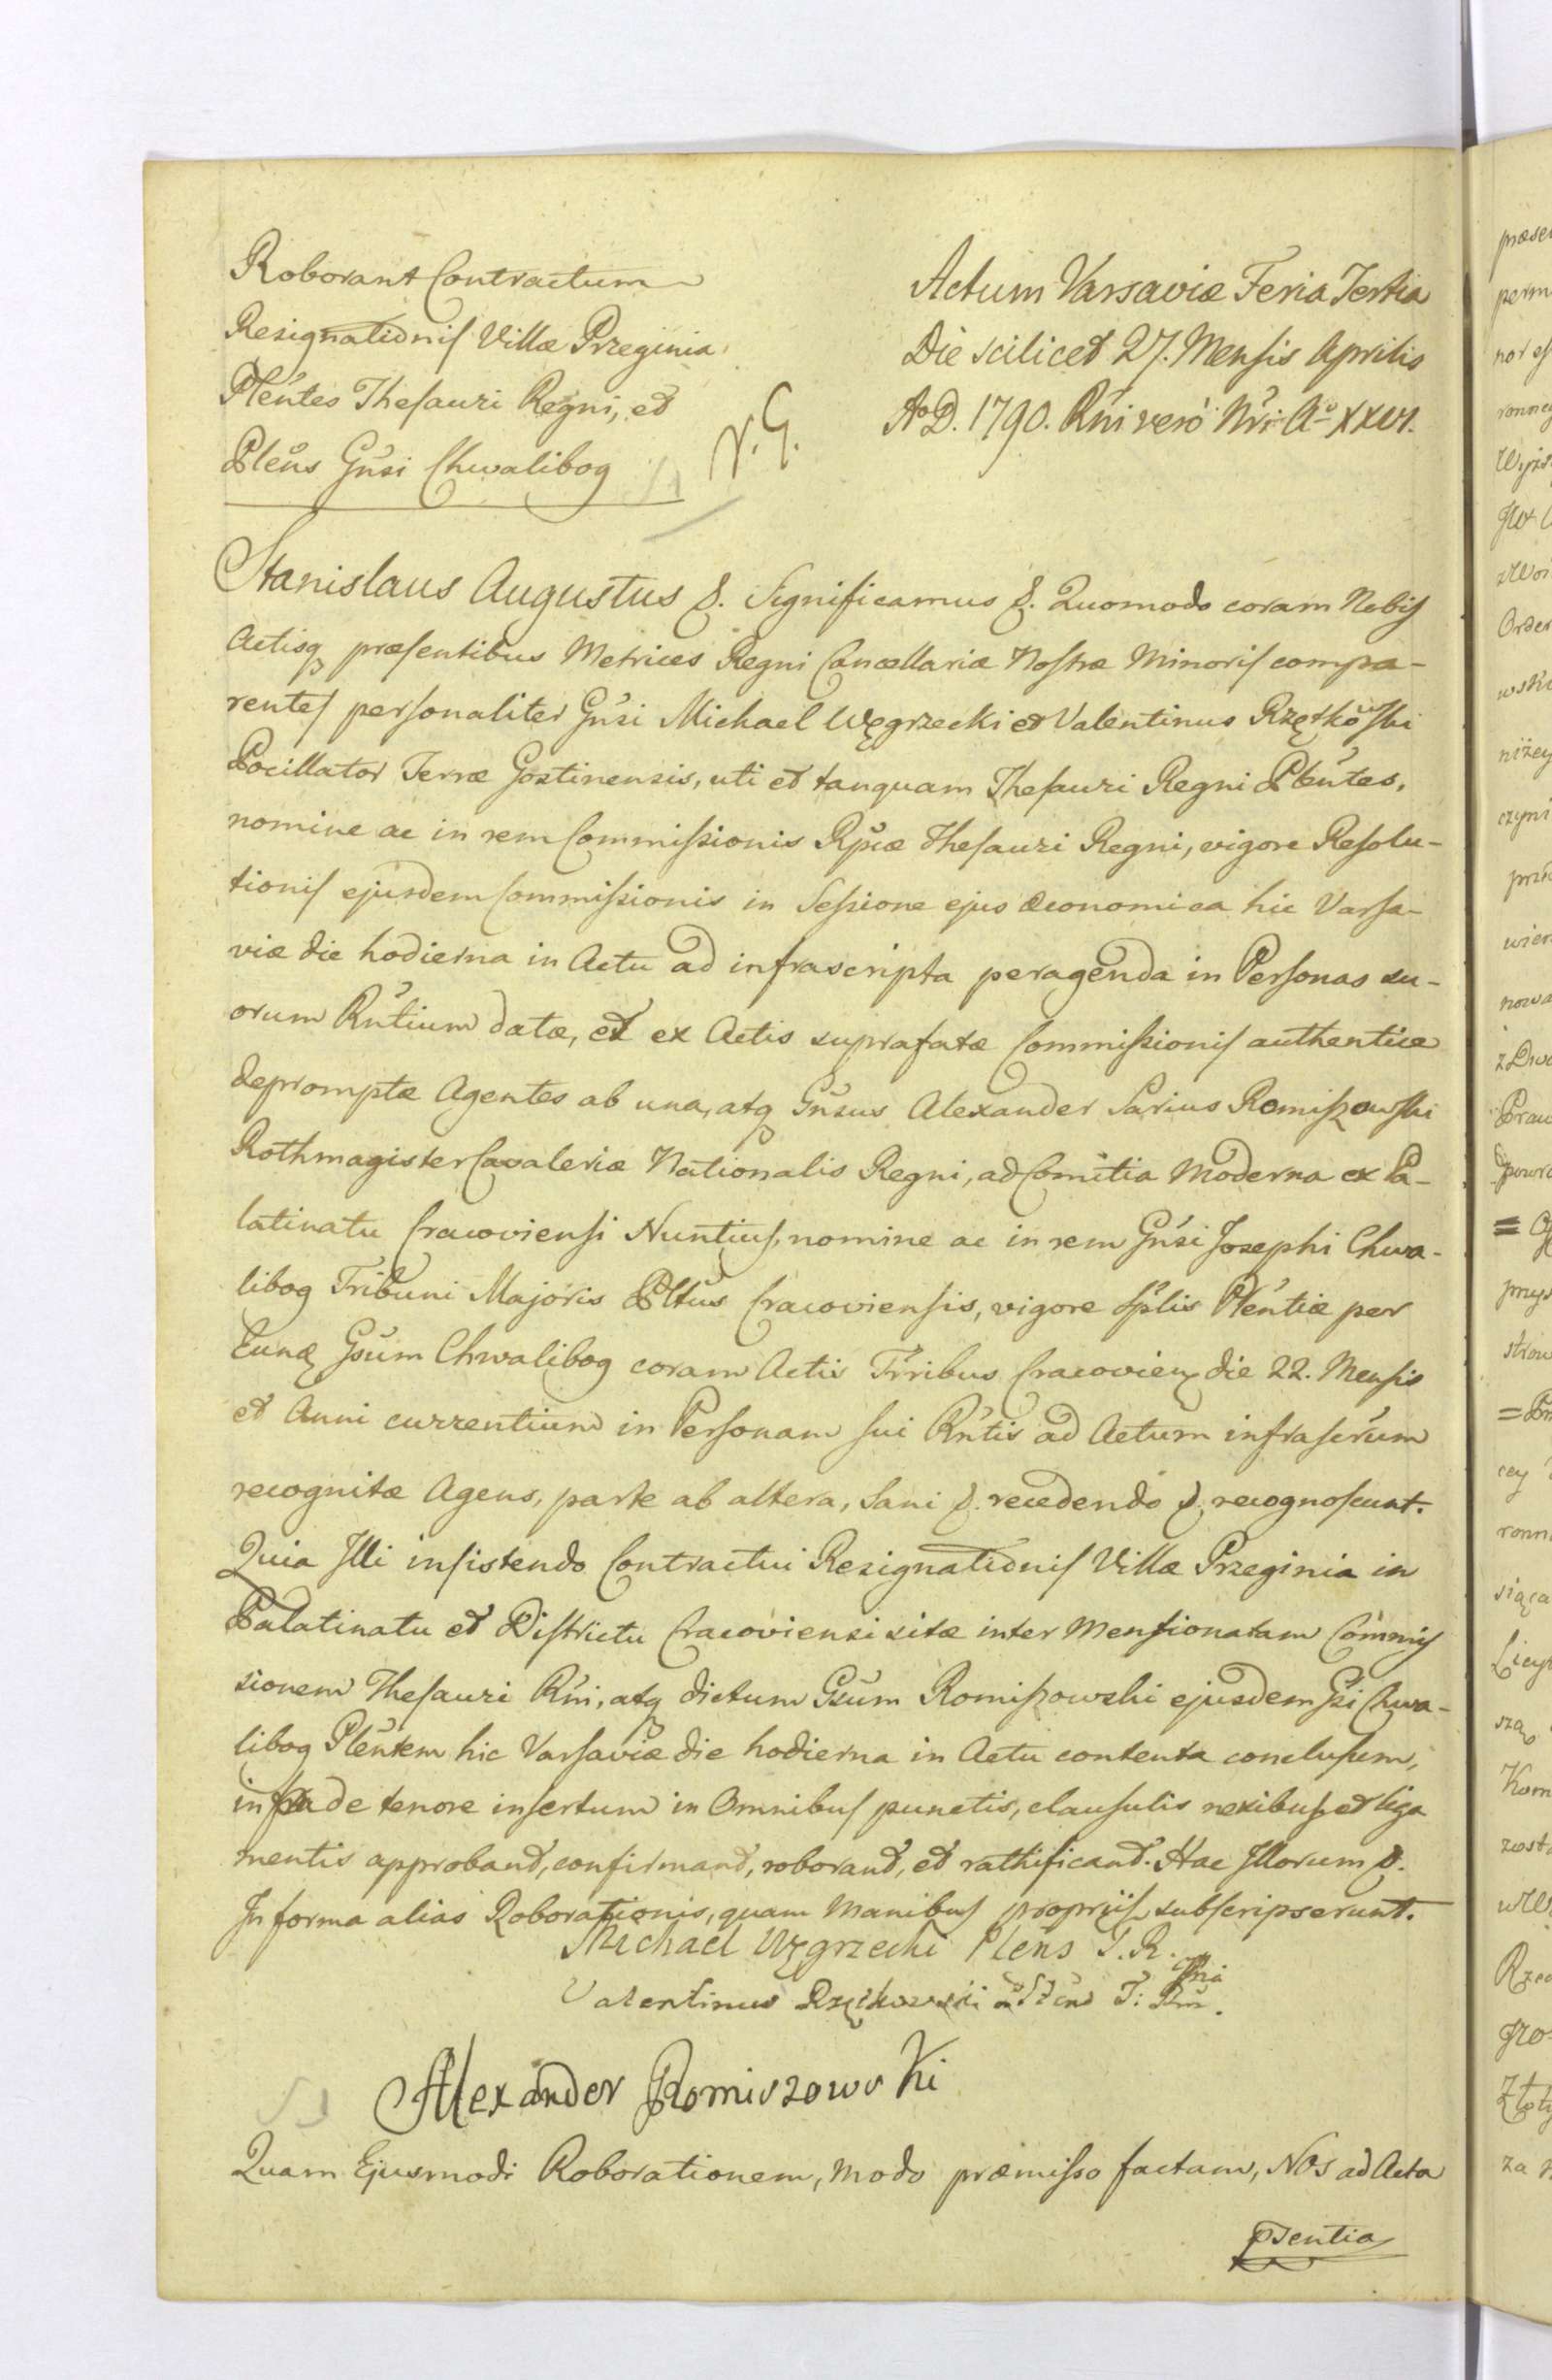 Roborant Contractum
Resignationis Villæ Przeginia
Plentes Thesauri Regni, et
Plens Gnsi Chwalibog
N. G.
Actum Varsaviæ Feria Tertia
Die scilicet 27. Mensis Aprilis
Ao D. 1790. Rni vero Nri Ao XXVI.
Stanislaus Augustus &. Significamus &. Quomodo coram Nobis
Actisq præsentibus Metrices Regni Cancellariæ Nostræ Minoris compa-
rentes personaliter Gnsi Michael Węgrzecki et Valentinus Rzętkowski
Pocillator Terræ Gostinensis, uti et tanquam Thesauri Regni Plentes,
nomine ac in rem Commissionis Rpcæ Thesauri Regni, vigore Resolu-
tionis ejusdem Commissionis in Sessione ejus Œconomica hic Varsa-
viæ die hodierna in Actu ad infrascripta peragenda in Personas su-
orum Rntium datæ, et ex Actis suprafatæ Commissionis authentice
depromptæ Agentes ab una, atq Gnsus Alexander Larius Romiszowski
Rothmagister Cavaleriæ Nationalis Regni, ad Comitia Moderna ex Pa-
latinatu Cracoviensi Nuntius, nomine ac in rem Gnsi Josephi Chwa-
libog Tribuni Majoris Pltus Cracoviensis, vigore Splis Plentiæ per
Eunq Gsum Chwalibog coram Actis Trribus Cracovien die 22. Mensis
et Anni currentium in Personam sui Rntis ad Actum infrascrum
recognitæ Agens, parte ab altera, Sani &. recedendo &. recognoscunt.
Quia Illi insistendo Contractui Resignationis Villæ Przeginia in
Palatinatu et Districtu Cracoviensi sitæ inter Mentionatam Commis
sionem Thesauri Rni, atq dictum Gsum Romiszowski ejusdem Gsi Chwa-
libog Plentem hic Varsaviæ die hodierna in Actu contenta conclusum,
infra de tenore insertum in Omnibus punctis, clausulis nexibus et liga
mentis approband, confirmand, roborand, et rathificand. Hac Illorum &.
In forma alias Roborationis, quam Manibus propriis subscripserunt.
Michael Węgrzecki Plens T. R.
Valentinus Rzętkowski
Alexander Romiszowski
Quam Ejusmodi Roborationem, modo præmisso factam, Nos ad Acta
psentia